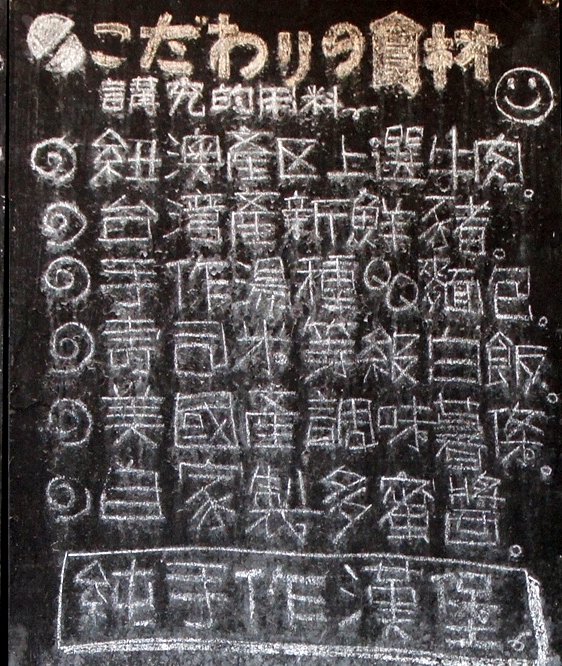 こだわりの食材
講究的用料~
紐澳產区上選牛肉。
台灣產新鮮豬。
手作湯種QQ麵包。
壽司米等級白飯。
美國產調味薯條。
自家製多蜜醬。
純手作漢堡。